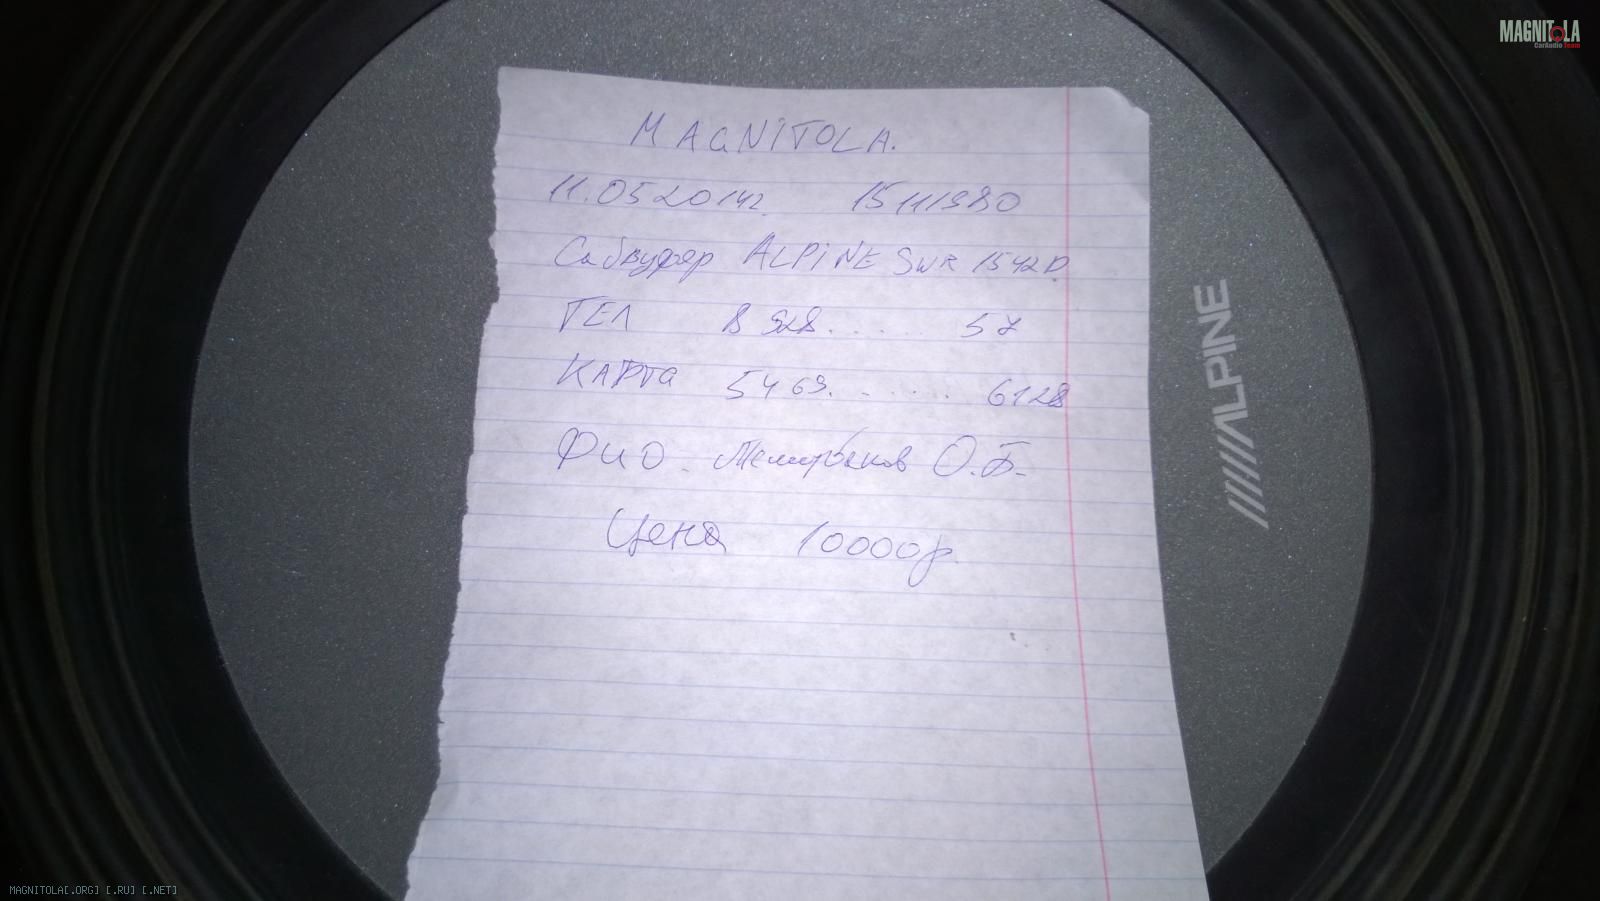 MAGNITOLA
CarAudio Team
MAGNITOLA.
11.05 2014г. 15111980
Сабвуфер ALPINE SWR 1542D
ТЕЛ 8 928. . . . . 57
КАРТа 5469. . . . . . 6128
ФИО. Темирбеков О.Б.
Цена 10000р.
ALPINE
MAGNITOLA[.ORG] [.RU] [.NET]